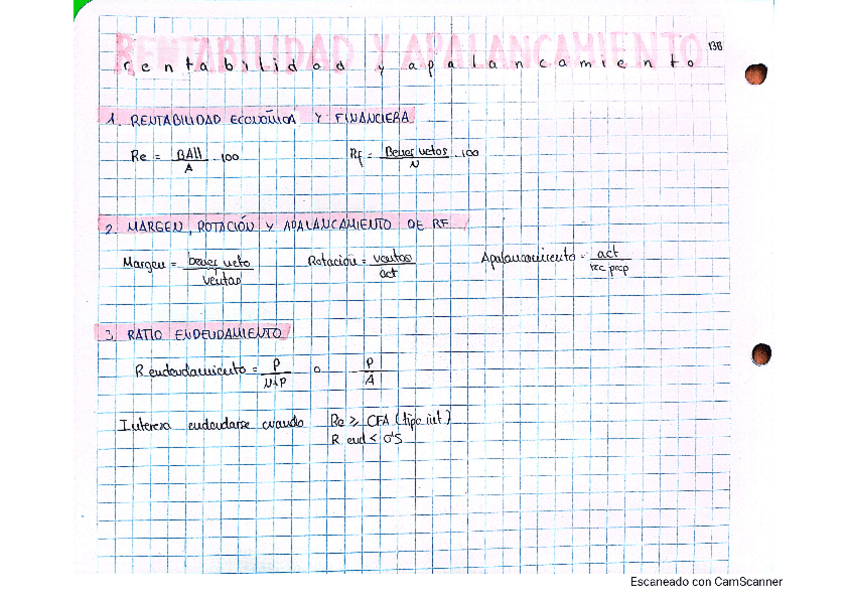 RENTABILIDAD Y APALANCAMIENTO
rentabilidad y apalancamiento
138
1. RENTABILIDAD ECONÓMICA Y FINANCIERA
Re = BAII / A · 100
Rf = Benef netos / N · 100
2. MARGEN, ROTACIÓN Y APALANCAMIENTO DE RF
Margen = benef neto / ventas
Rotación = ventas / act
Apalancamiento = act / rec prop
3. RATIO ENDEUDAMIENTO
R endeudamiento = P / N+P o P / A
Interesa endeudarse cuando Re ≥ CFA (tipo int)
R end < 0'5
Escaneado con CamScanner